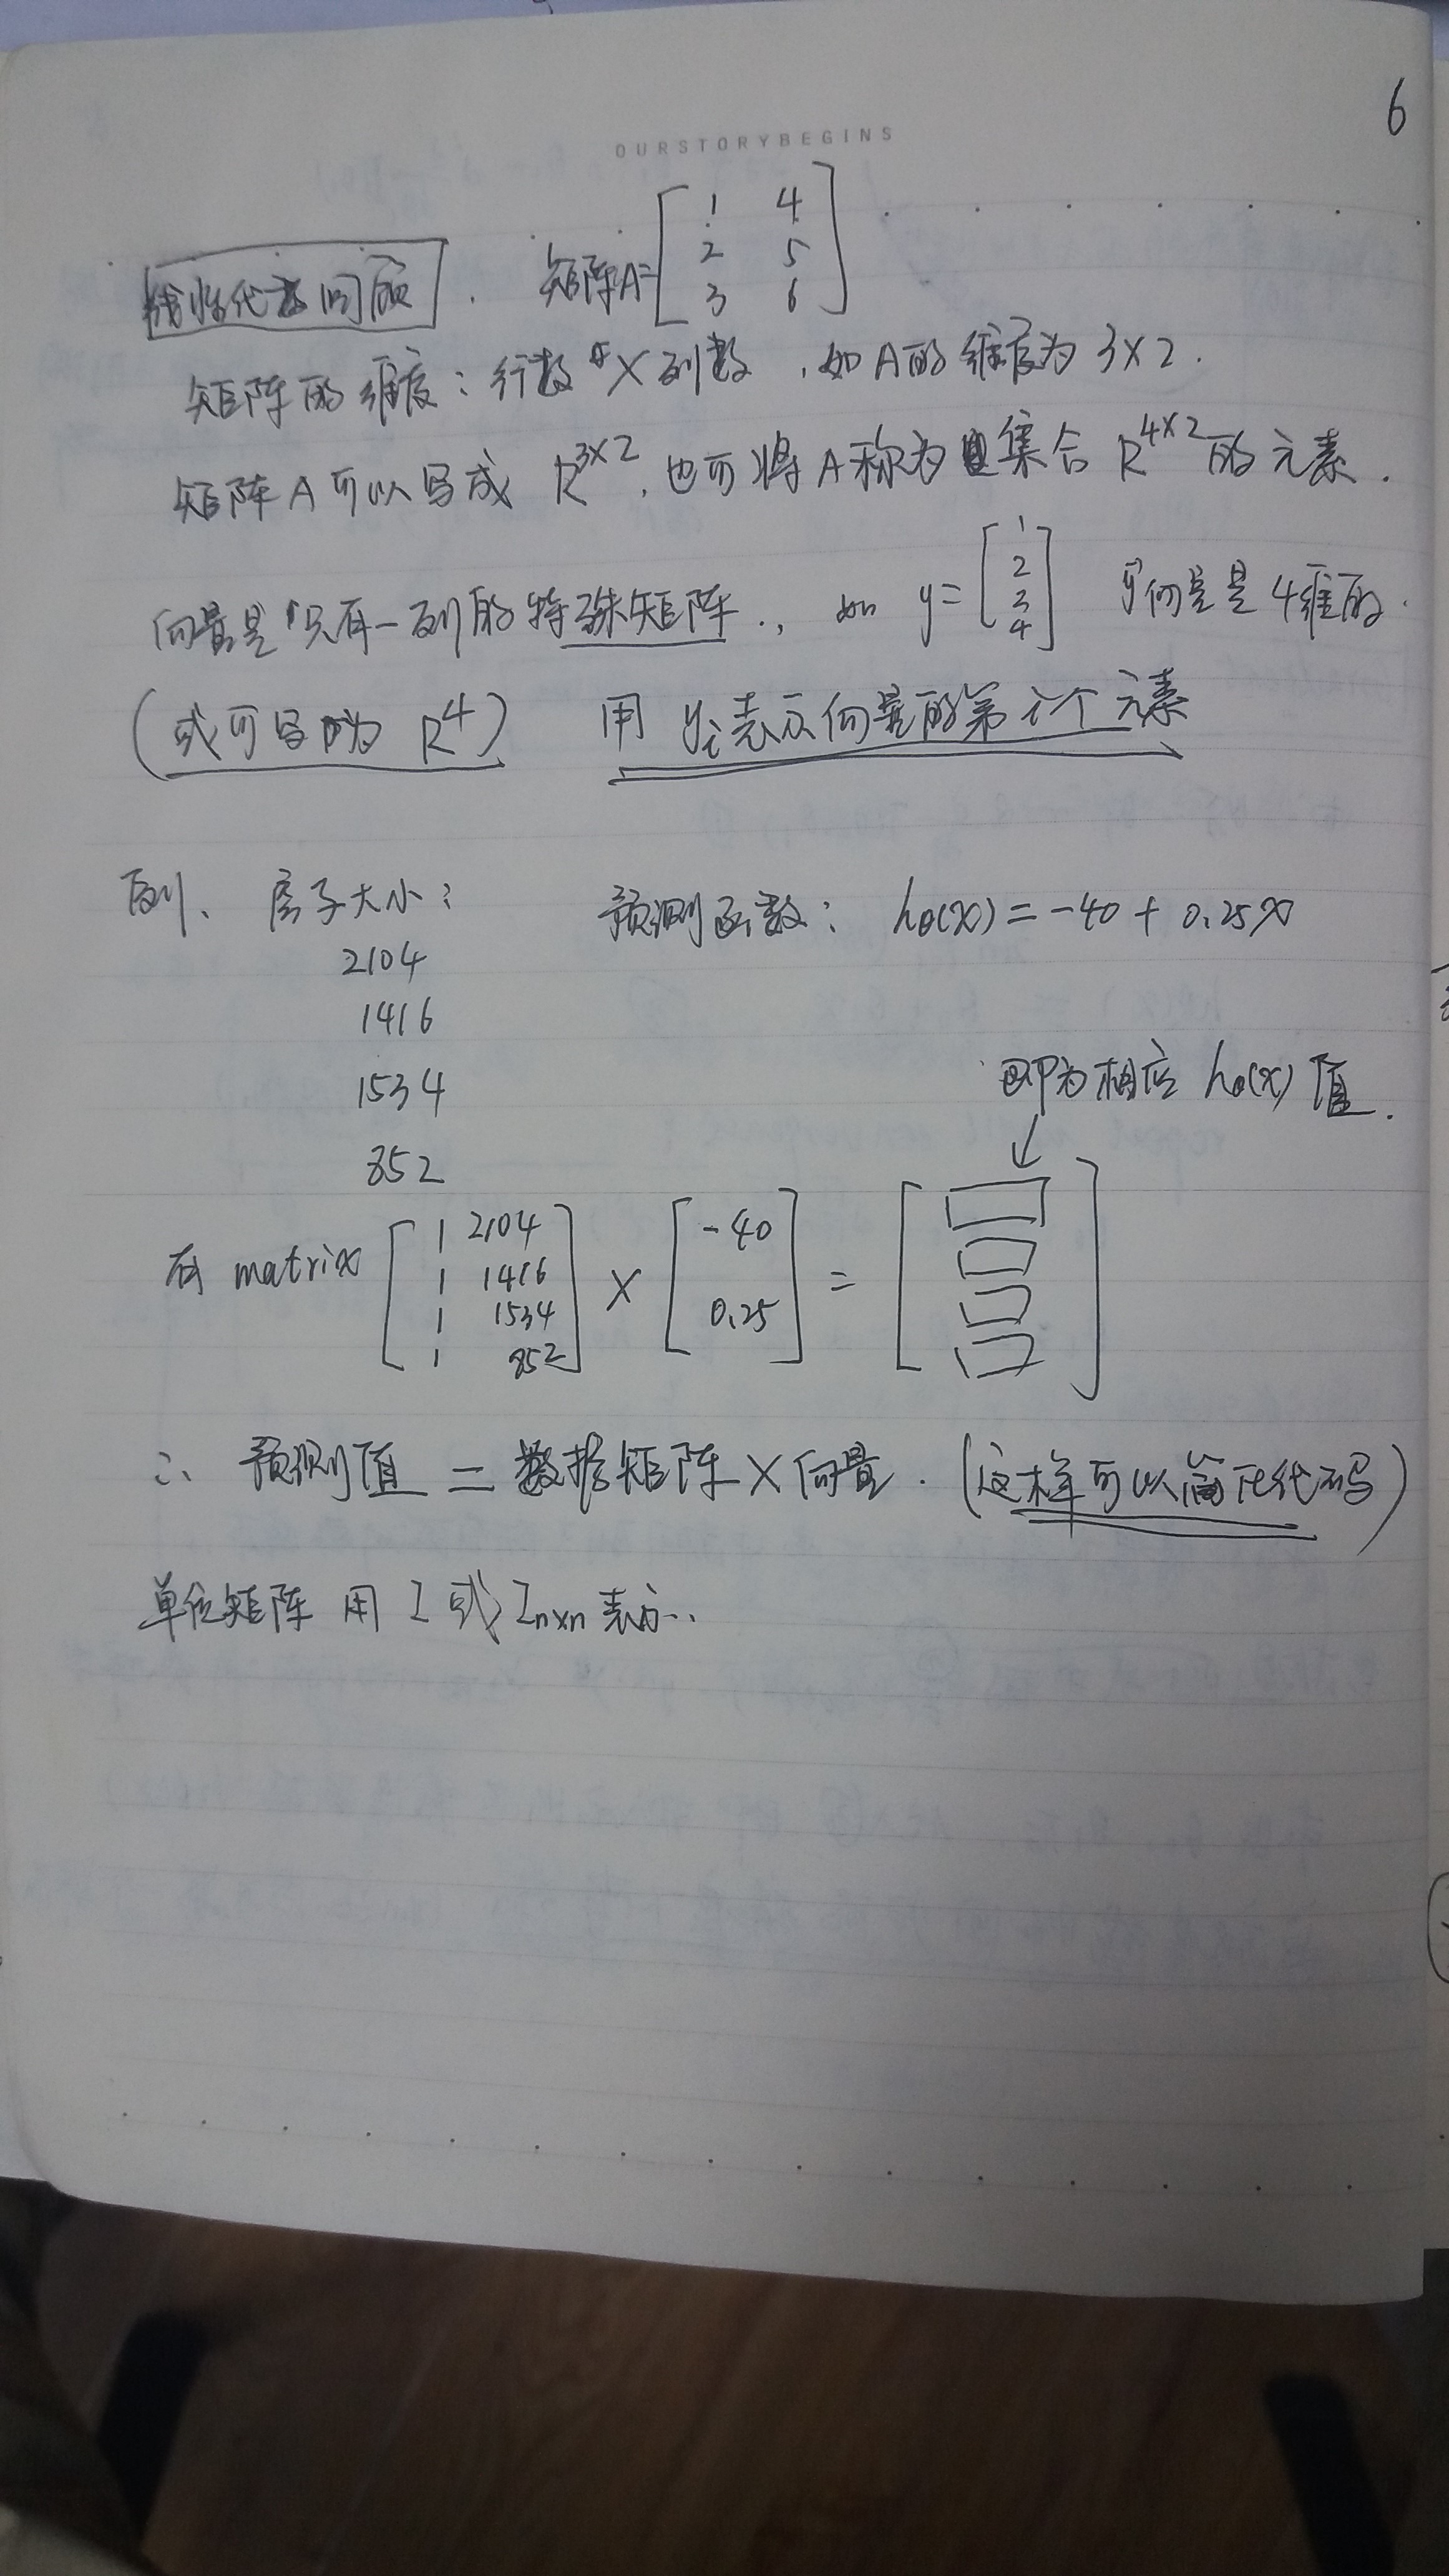 6
OURSTORYBEGINS
线性代数回顾. 矩阵A=[1 4
2 5
3 6]
矩阵的维度:行数×列数,如A的维度为3×2.
矩阵A可以写成 R^{3×2},也可将A称为集合 R^{4×2}的元素.
向量是只有一列的特殊矩阵., 如 y=[1
2
3
4] y向量是4维的.
(或可写为 R^4) 用 y_i表示向量的第i个元素
例、 房子大小: 预测函数: hθ(x)=-40+0.25x
2104
1416
1534
852
即为相应 hθ(x) 值.
↓
有 matrix [1 2104
1 1416
1 1534
1 852] × [-40
0.25] = [ ]
∴ 预测值 = 数据矩阵×向量.(这样可以简化代码)
单位矩阵 用 I 或 I_{n×n} 表示.